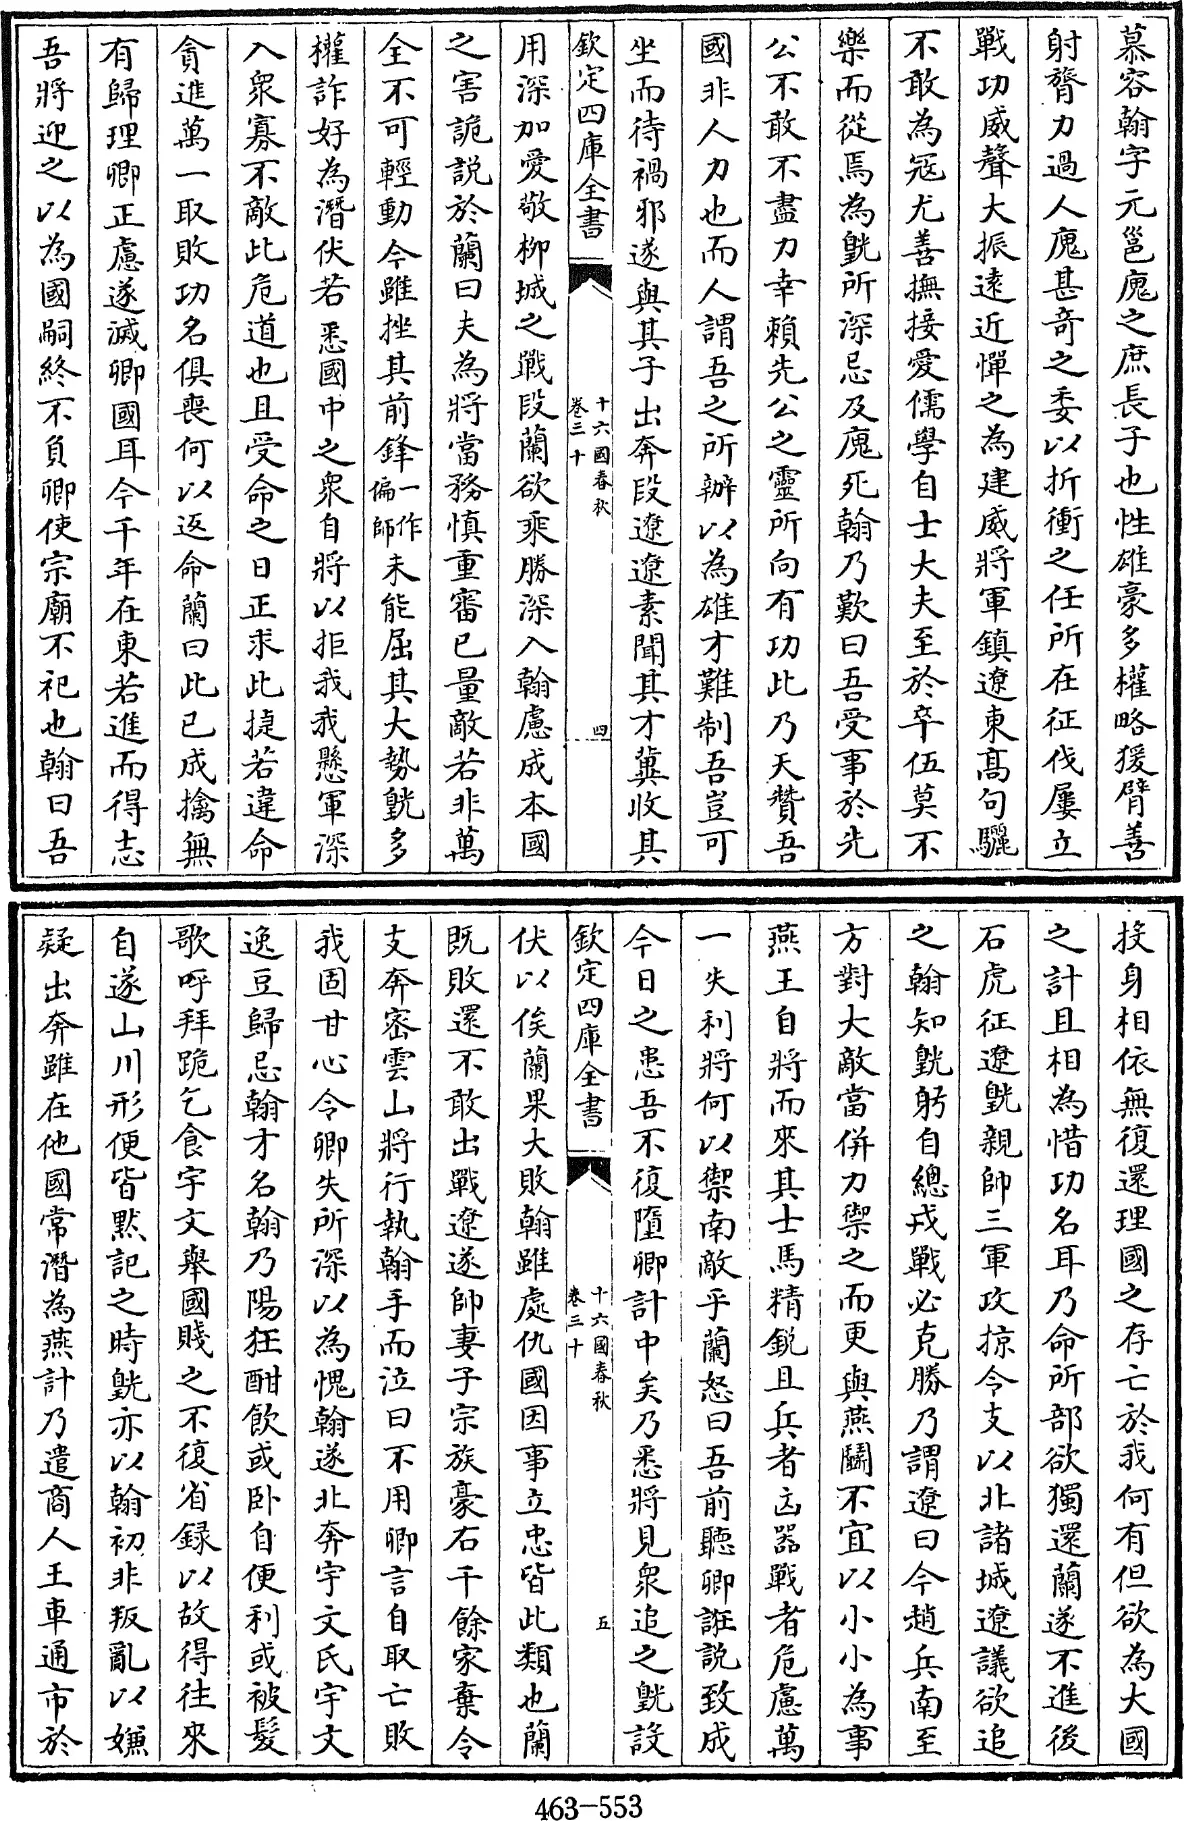 慕容翰字元邕廆之庶長子也性雄豪多權略猨臂善
射膂力過人廆甚奇之委以折衝之任所在征伐屢立
戰功威聲大振遠近憚之為建威將軍鎮遼東髙句驪
不敢為冦尤善撫接愛儒學自士大夫至於卒伍莫不
樂而從焉為皝所深忌及廆死翰乃歎曰吾受事於先
公不敢不盡力幸賴先公之靈所向有功此乃天贊吾
國非人力也而人謂吾之所辦以為雄才難制吾豈可
坐而待禍邪遂與其子出奔段遼遼素聞其才冀收其
欽定四庫全書
十六國春秋
卷三十
四
用深加愛敬柳城之戰段蘭欲乘勝深入翰慮成本國
之害詭説於蘭曰夫為將當務慎重審己量敵若非萬
全不可輕動今雖挫其前鋒一作偏師未能屈其大勢皝多
權詐好為潛伏若悉國中之衆自將以拒我我懸軍深
入衆寡不敵此危道也且受命之日正求此捷若違命
貪進萬一取敗功名俱喪何以返命蘭曰此已成擒無
有歸理卿正慮遂滅卿國耳今千年在東若進而得志
吾將迎之以為國嗣終不負卿使宗廟不祀也翰曰吾
投身相依無復還理國之存亡於我何有但欲為大國
之計且相為惜功名耳乃命所部欲獨還蘭遂不進後
石虎征遼皝親帥三軍攻掠令支以北諸城遼議欲追
之翰知皝躬自總戎戰必克勝乃謂遼曰今趙兵南至
方對大敵當併力禦之而更與燕鬭不宜以小小為事
燕王自將而來其士馬精鋭且兵者凶器戰者危慮萬
一失利將何以禦南敵乎蘭怒曰吾前聽卿誑説致成
今日之患吾不復墮卿計中矣乃悉將見衆追之皝設
欽定四庫全書
十六國春秋
卷三十
五
伏以俟蘭果大敗翰雖處仇國因事立忠皆此類也蘭
既敗還不敢出戰遼遂帥妻子宗族豪右千餘家棄令
支奔宻雲山將行執翰手而泣曰不用卿言自取亡敗
我固甘心令卿失所深以為愧翰遂北奔宇文氏宇文
逸豆歸忌翰才名翰乃陽狂酣飲或卧自便利或被髮
歌呼拜跪乞食宇文舉國賤之不復省録以故得往來
自遂山川形便皆黙記之時皝亦以翰初非叛亂以嫌
疑出奔雖在他國常潛為燕計乃遣商人王車通市於
463-553